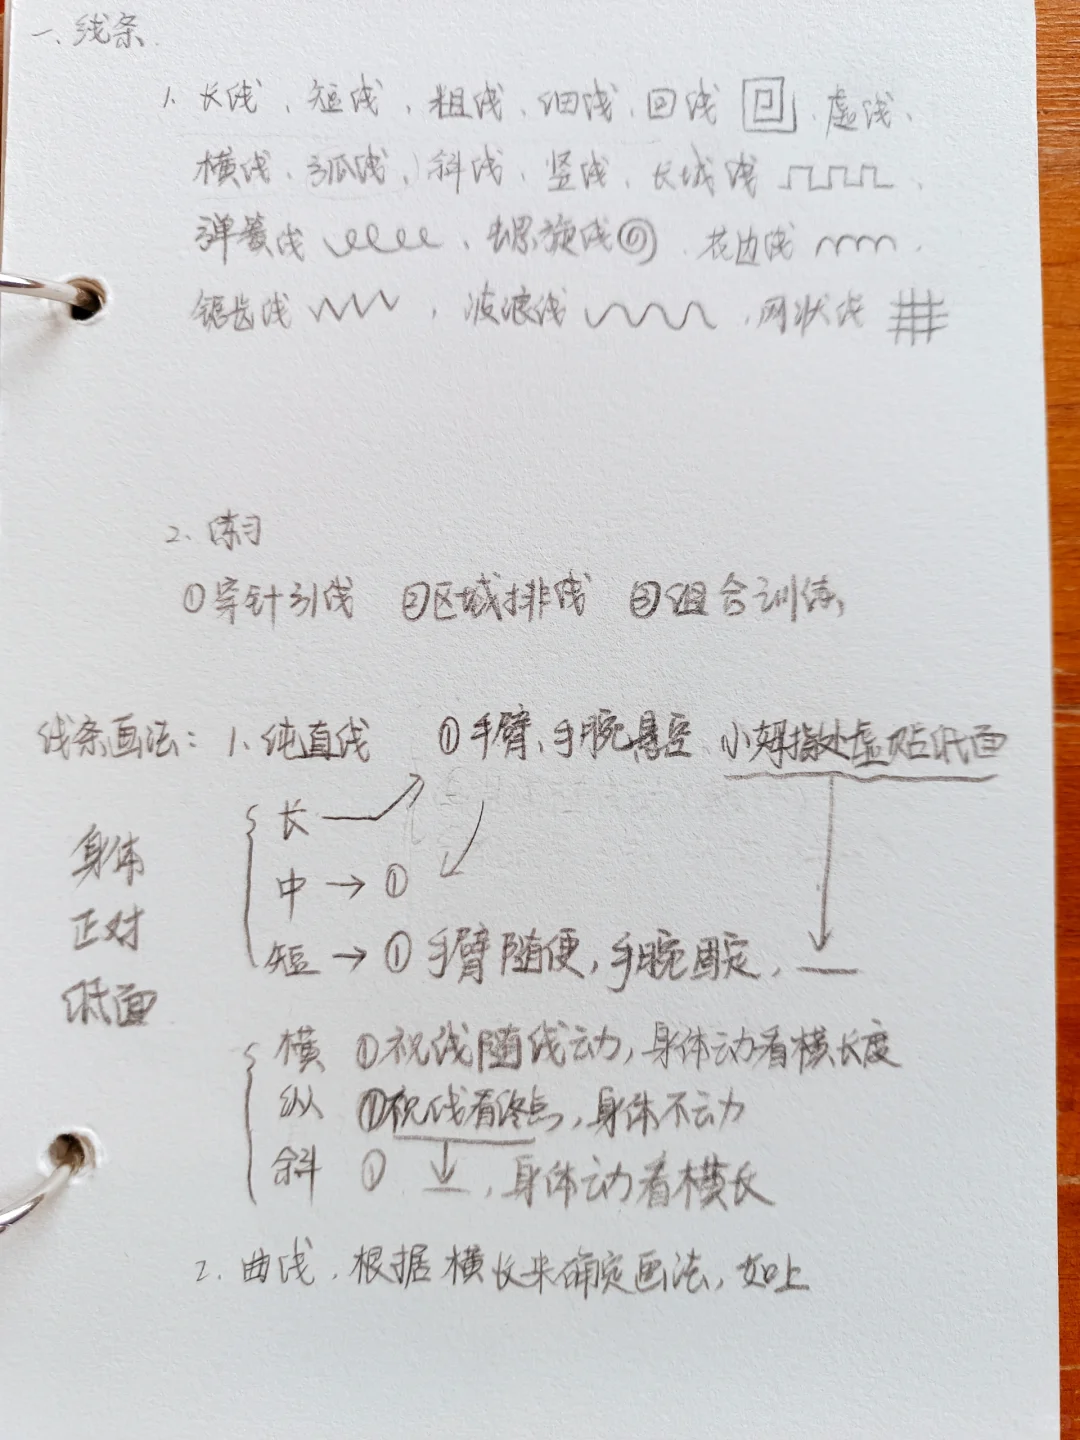 一、线条.
1. 长线、短线、粗线、细线、回线、虚线、
横线、弧线、斜线、竖线、长城线、
弹簧线、螺旋线、花边线、
锯齿线、波浪线、网状线
2. 练习
①穿针引线 ②区域排线 ③组合训练,
线条画法: 1. 纯直线 ①手臂、手腕悬空、小姆指处虚贴纸面
长
中 → ①
短 → ① 手臂随便, 手腕固定,
身体
正对
纸面
横 ①视线随线动, 身体动看横长度
纵 ①视线看终点, 身体不动
斜 ① , 身体动看横长
2. 曲线, 根据横长来确定画法, 如上